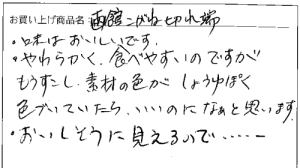 お買い上げ商品名 函館こがね切れ端
・味はおいしいです。
・やわらかく、食べやすいのですが
もう少し、素材の色がしょうゆぽく
色づいていたら、いいのになぁと思います
・おいしそうに見えるので……